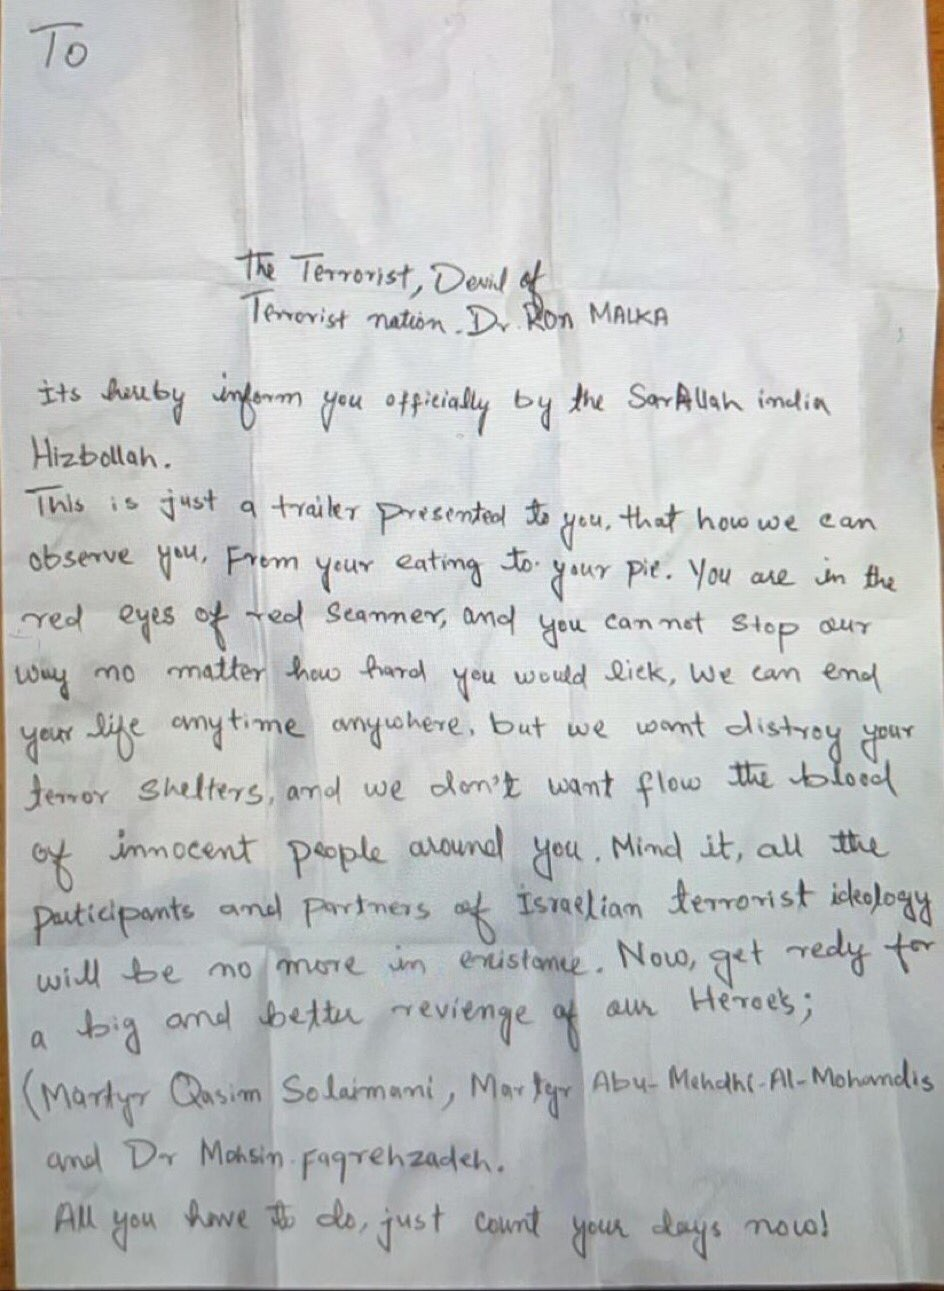 To
The Terrorist, Devil of
Terrorist nation. Dr. Ron MALKA
Its hereby inform you officially by the SarAllah india
Hizbollah.
This is just a trailer presented to you, that how we can
observe you, From your eating to your pie. You are in the
red eyes of red Scanner, and you can not Stop our
way no matter how hard you would lick, We can end
your life anytime anywhere, but we want distroy your
terror Shelters, and we don't want flow the blood
of innocent people around you. Mind it, all the
participants and partners of Israelian terrorist ideology
will be no more in existance. Now, get redy for
a big and better revienge of our Heroe's;
(Martyr Qasim Solaimani, Martyr Abu-Mehdhi-Al-Mohandis
and Dr Mohsin faqrehzadeh.
All you have to do, just count your days now!